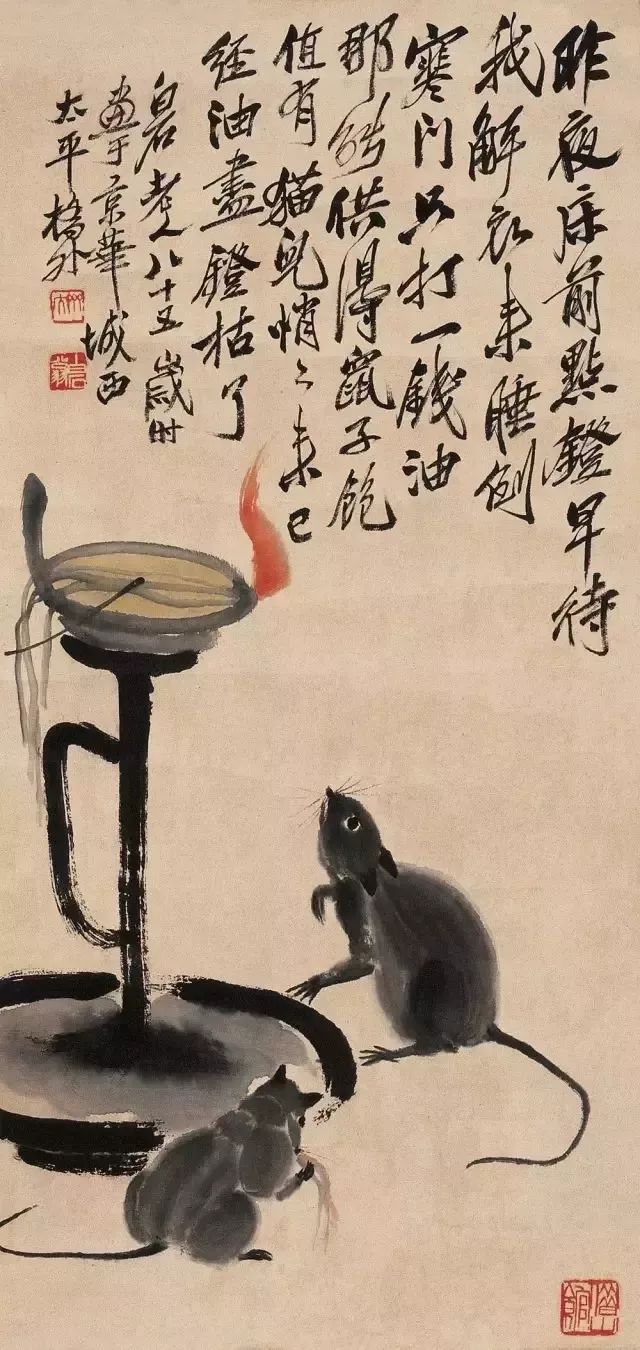 昨夜床前點鐙早待
我解衣来睡倒
寒门只打一錢油
那能供得鼠子飽
值有猫兒悄〻来已
经油盡鐙枯了
白石老人八十五歲时
畫于京華城西
太平橋外
借山館